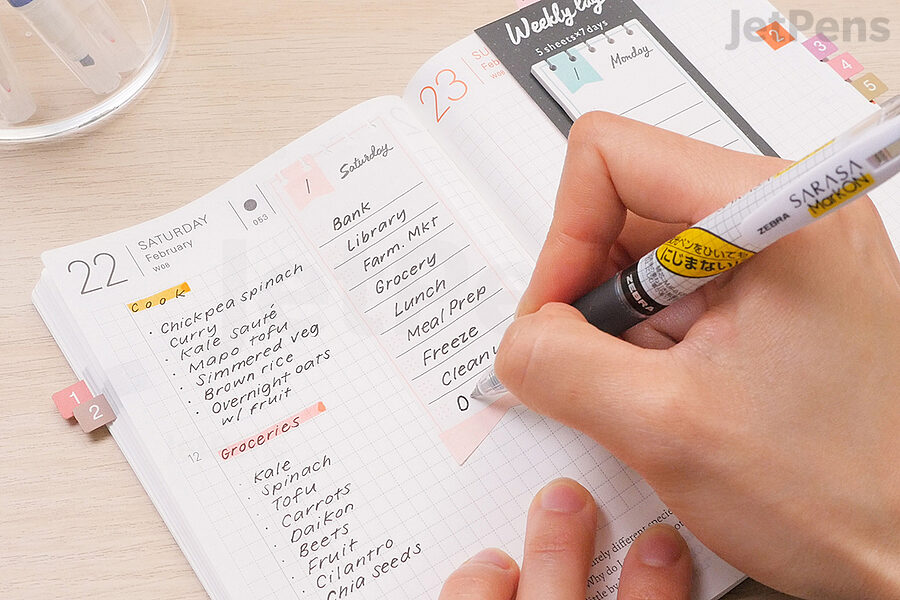 JetPens
22
SATURDAY
February
W08
053
Cook
• Chickpea spinach
curry
• Kale sauté
• Mapo tofu
• Simmered veg
• Brown rice
• Overnight oats
w/ fruit
12
Groceries
• Kale
• Spinach
• Tofu
• Carrots
• Daikon
• Beets
• Fruit
• Cilantro
• Chia seeds
1
Saturday
Bank
Library
Farm. Mkt
Grocery
Lunch
Meal Prep
Freeze
Clean
23
W08
Weekly log
5 sheets×7 days
1
Monday
2
3
4
5
1
2
ZEBRA
SARASA
MarkON
にじまない
ZEBRA
different species
Why do
little by